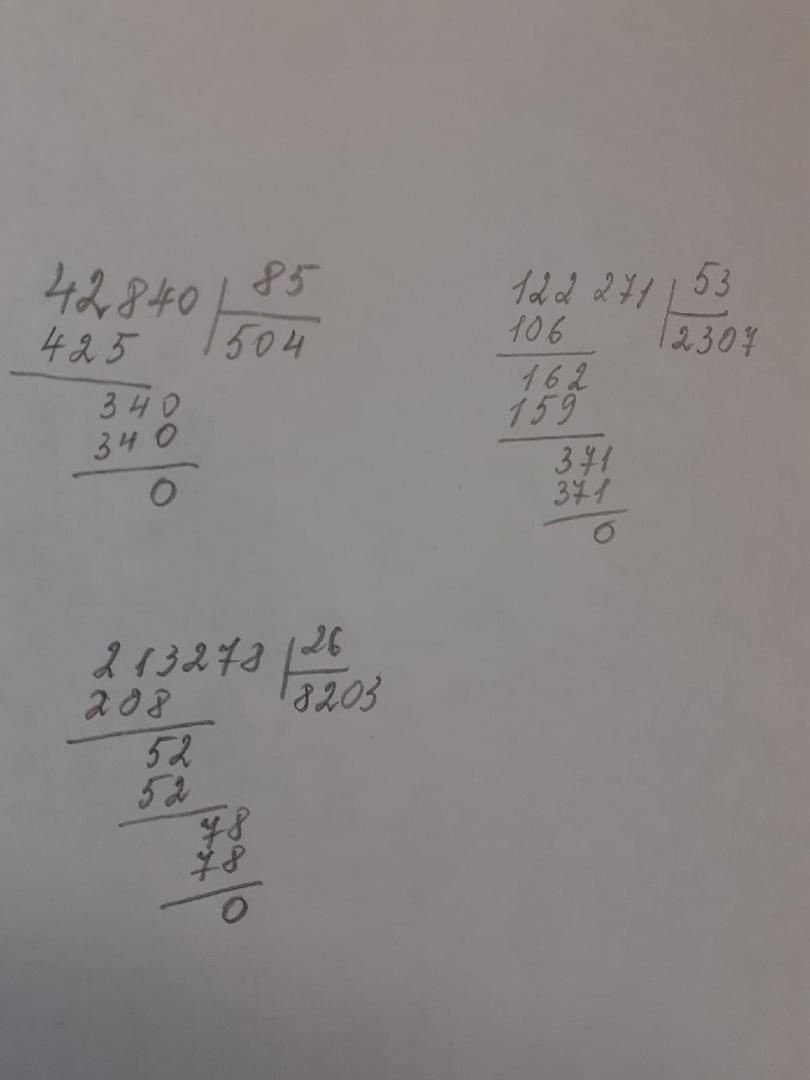 42840 85
425 504
340
340
0
122 271 53
106 2307
162
159
371
371
0
213278 26
208 8203
52
52
78
78
0